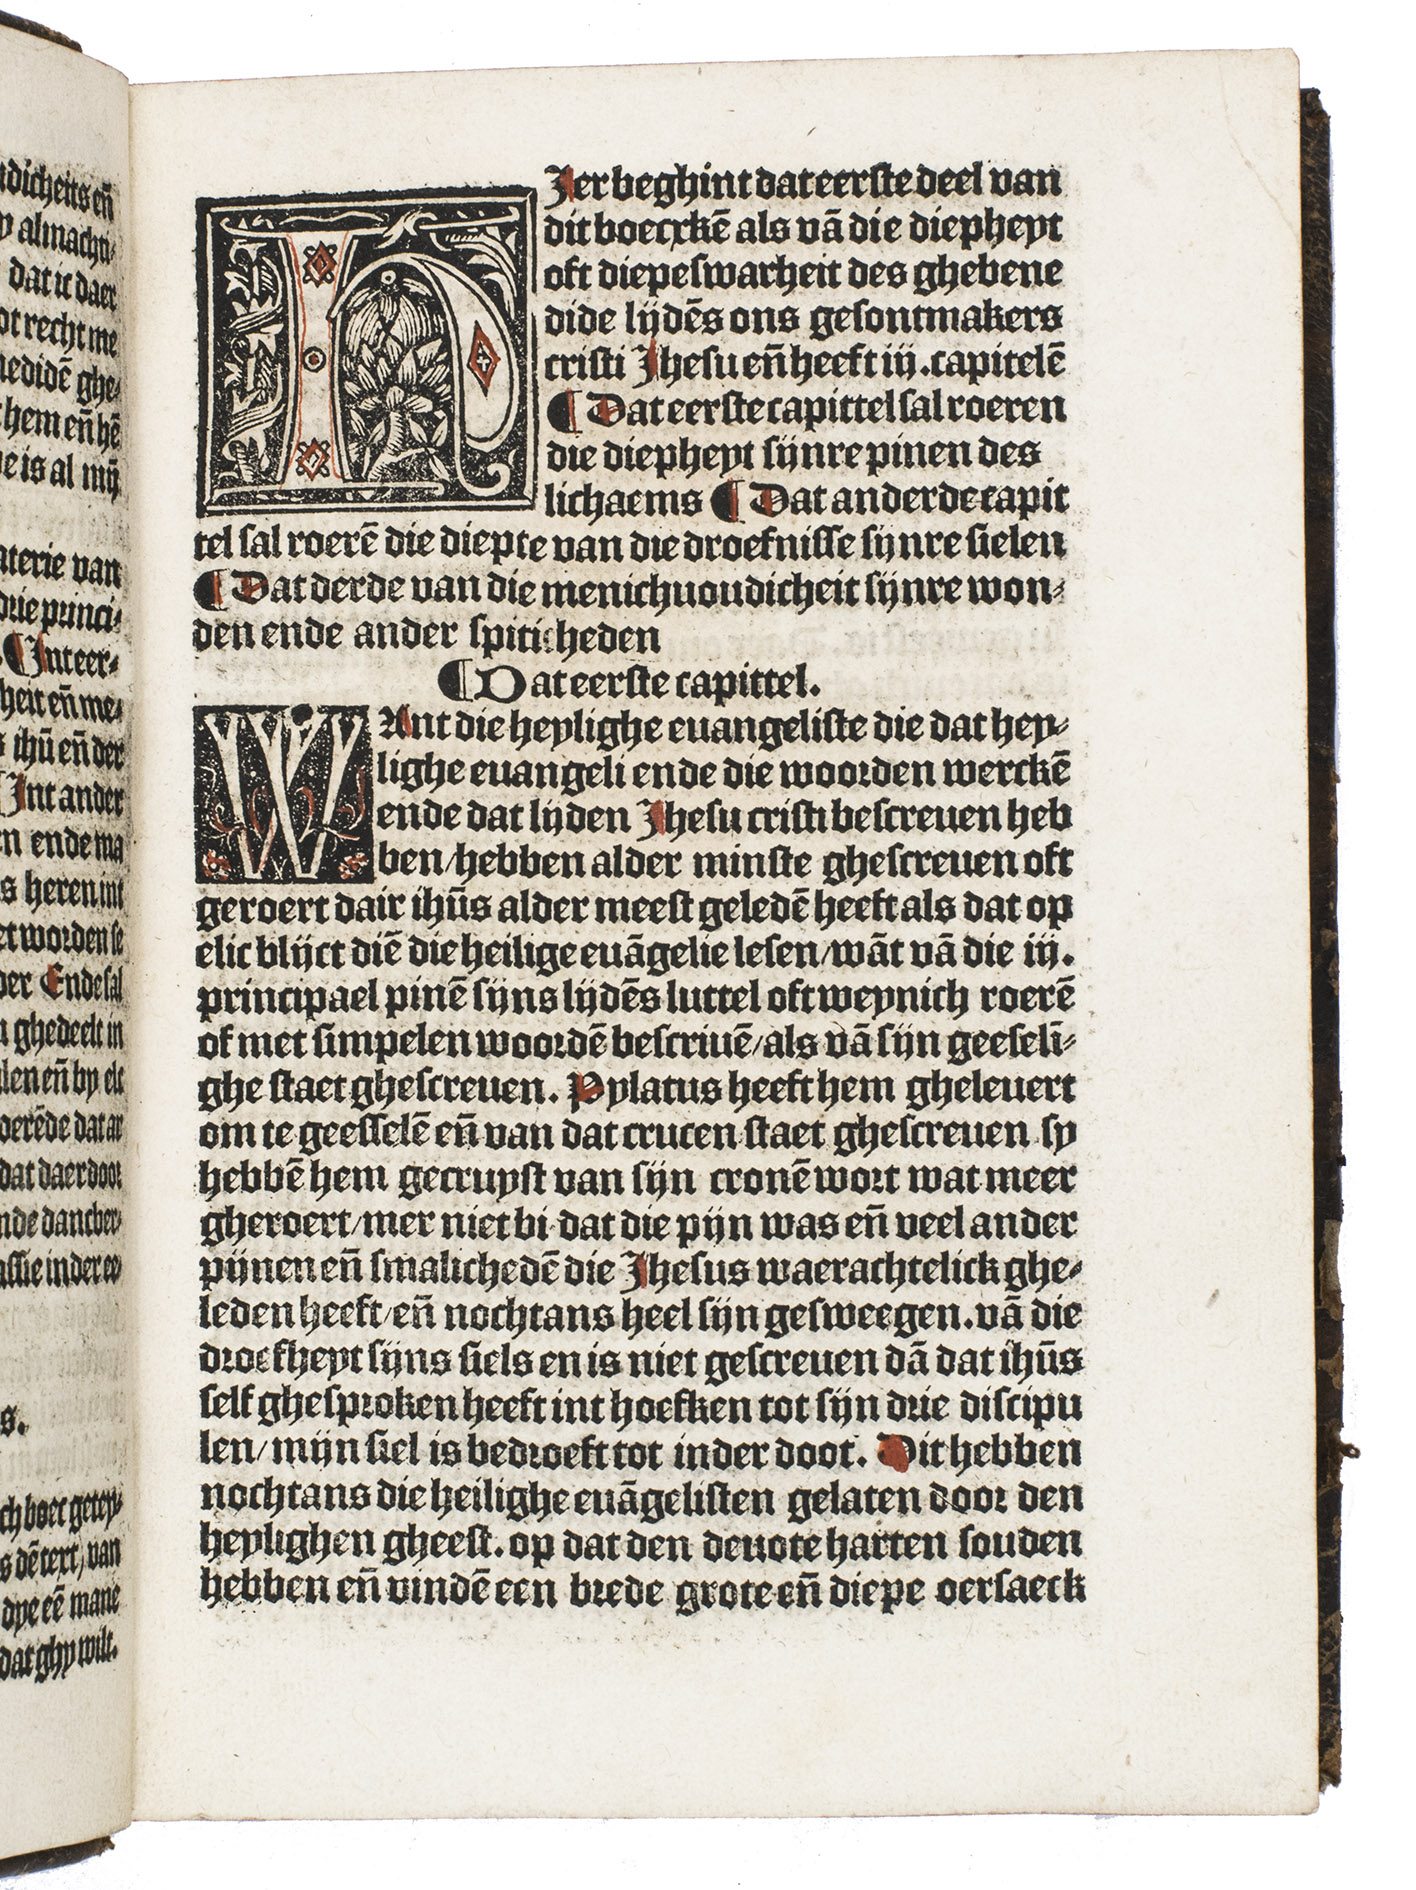 dicheits en̄
y almachti⸗
dat ic daer
ot recht me
hem en̄ hē
e is al mȳ
aterie van
drie princi⸗
¶ Int eer⸗
heit en̄ me⸗
ihū en̄ der
Int ander
en ende ma
s heren int
et worden se
der Ende sal
ghedeelt in
len en̄ by elc
oerēde dat ar
dat daer door
nde dancber⸗
assie in der ee
s.
ch boec getey⸗
s dē text, van
dye eē mane
dat ghy wilt.
HIer beghint dat eerste deel van
dit boecxkē als vā die diepheyt
oft diepe swarheit des ghebene
dide lijdēs ons gesontmakers
cristi Jhesu en̄ heeft iij. capitelē
¶ Dat eerste capittel sal roeren
die diepheyt sijnre pinen des
lichaems ¶ Dat anderde capit
tel sal roerē die diepte van die droefnisse sijnre sielen
¶ Dat derde van die menichuoudicheit sijnre won⸗
den ende ander spiticheden
¶ Dat eerste capittel.
WAnt die heylighe euangeliste die dat hey⸗
lighe euangeli ende die woorden werckē
ende dat lijden Jhesu cristi bescreuen heb
ben/hebben alder minste ghescreuen oft
geroert dair ihūs alder meest geledē heeft als dat op
elic blijct diē die heilige euāgelie lesen/wāt vā die iij.
principael pinē sijns lijdēs luttel oft weynich roerē
of met simpelen woordē bescriuē/als vā sijn geeselī⸗
ghe staet ghescreuen. Pylatus heeft hem gheleuert
om te geesselē en̄ van dat crucen staet ghescreuen sy
hebbē hem gecruyst van sijn cronē wort wat meer
gheroert/mer niet bi dat die pijn was en̄ veel ander
pijnen en̄ smalichedē die Jhesus waerachtelick ghe⸗
leden heeft/en̄ nochtans heel sijn gesweegen. vā die
droefheyt sijns siels en is niet gescreuen dā dat ihūs
self ghesproken heeft int hoefken tot sijn drie discipu
len/mijn siel is bedroeft tot in der doot. Dit hebben
nochtans die heilighe euāgelisten gelaten door den
heylighen gheest. op dat den deuote harten souden
hebben en̄ vindē een brede grote en̄ diepe oersaeck